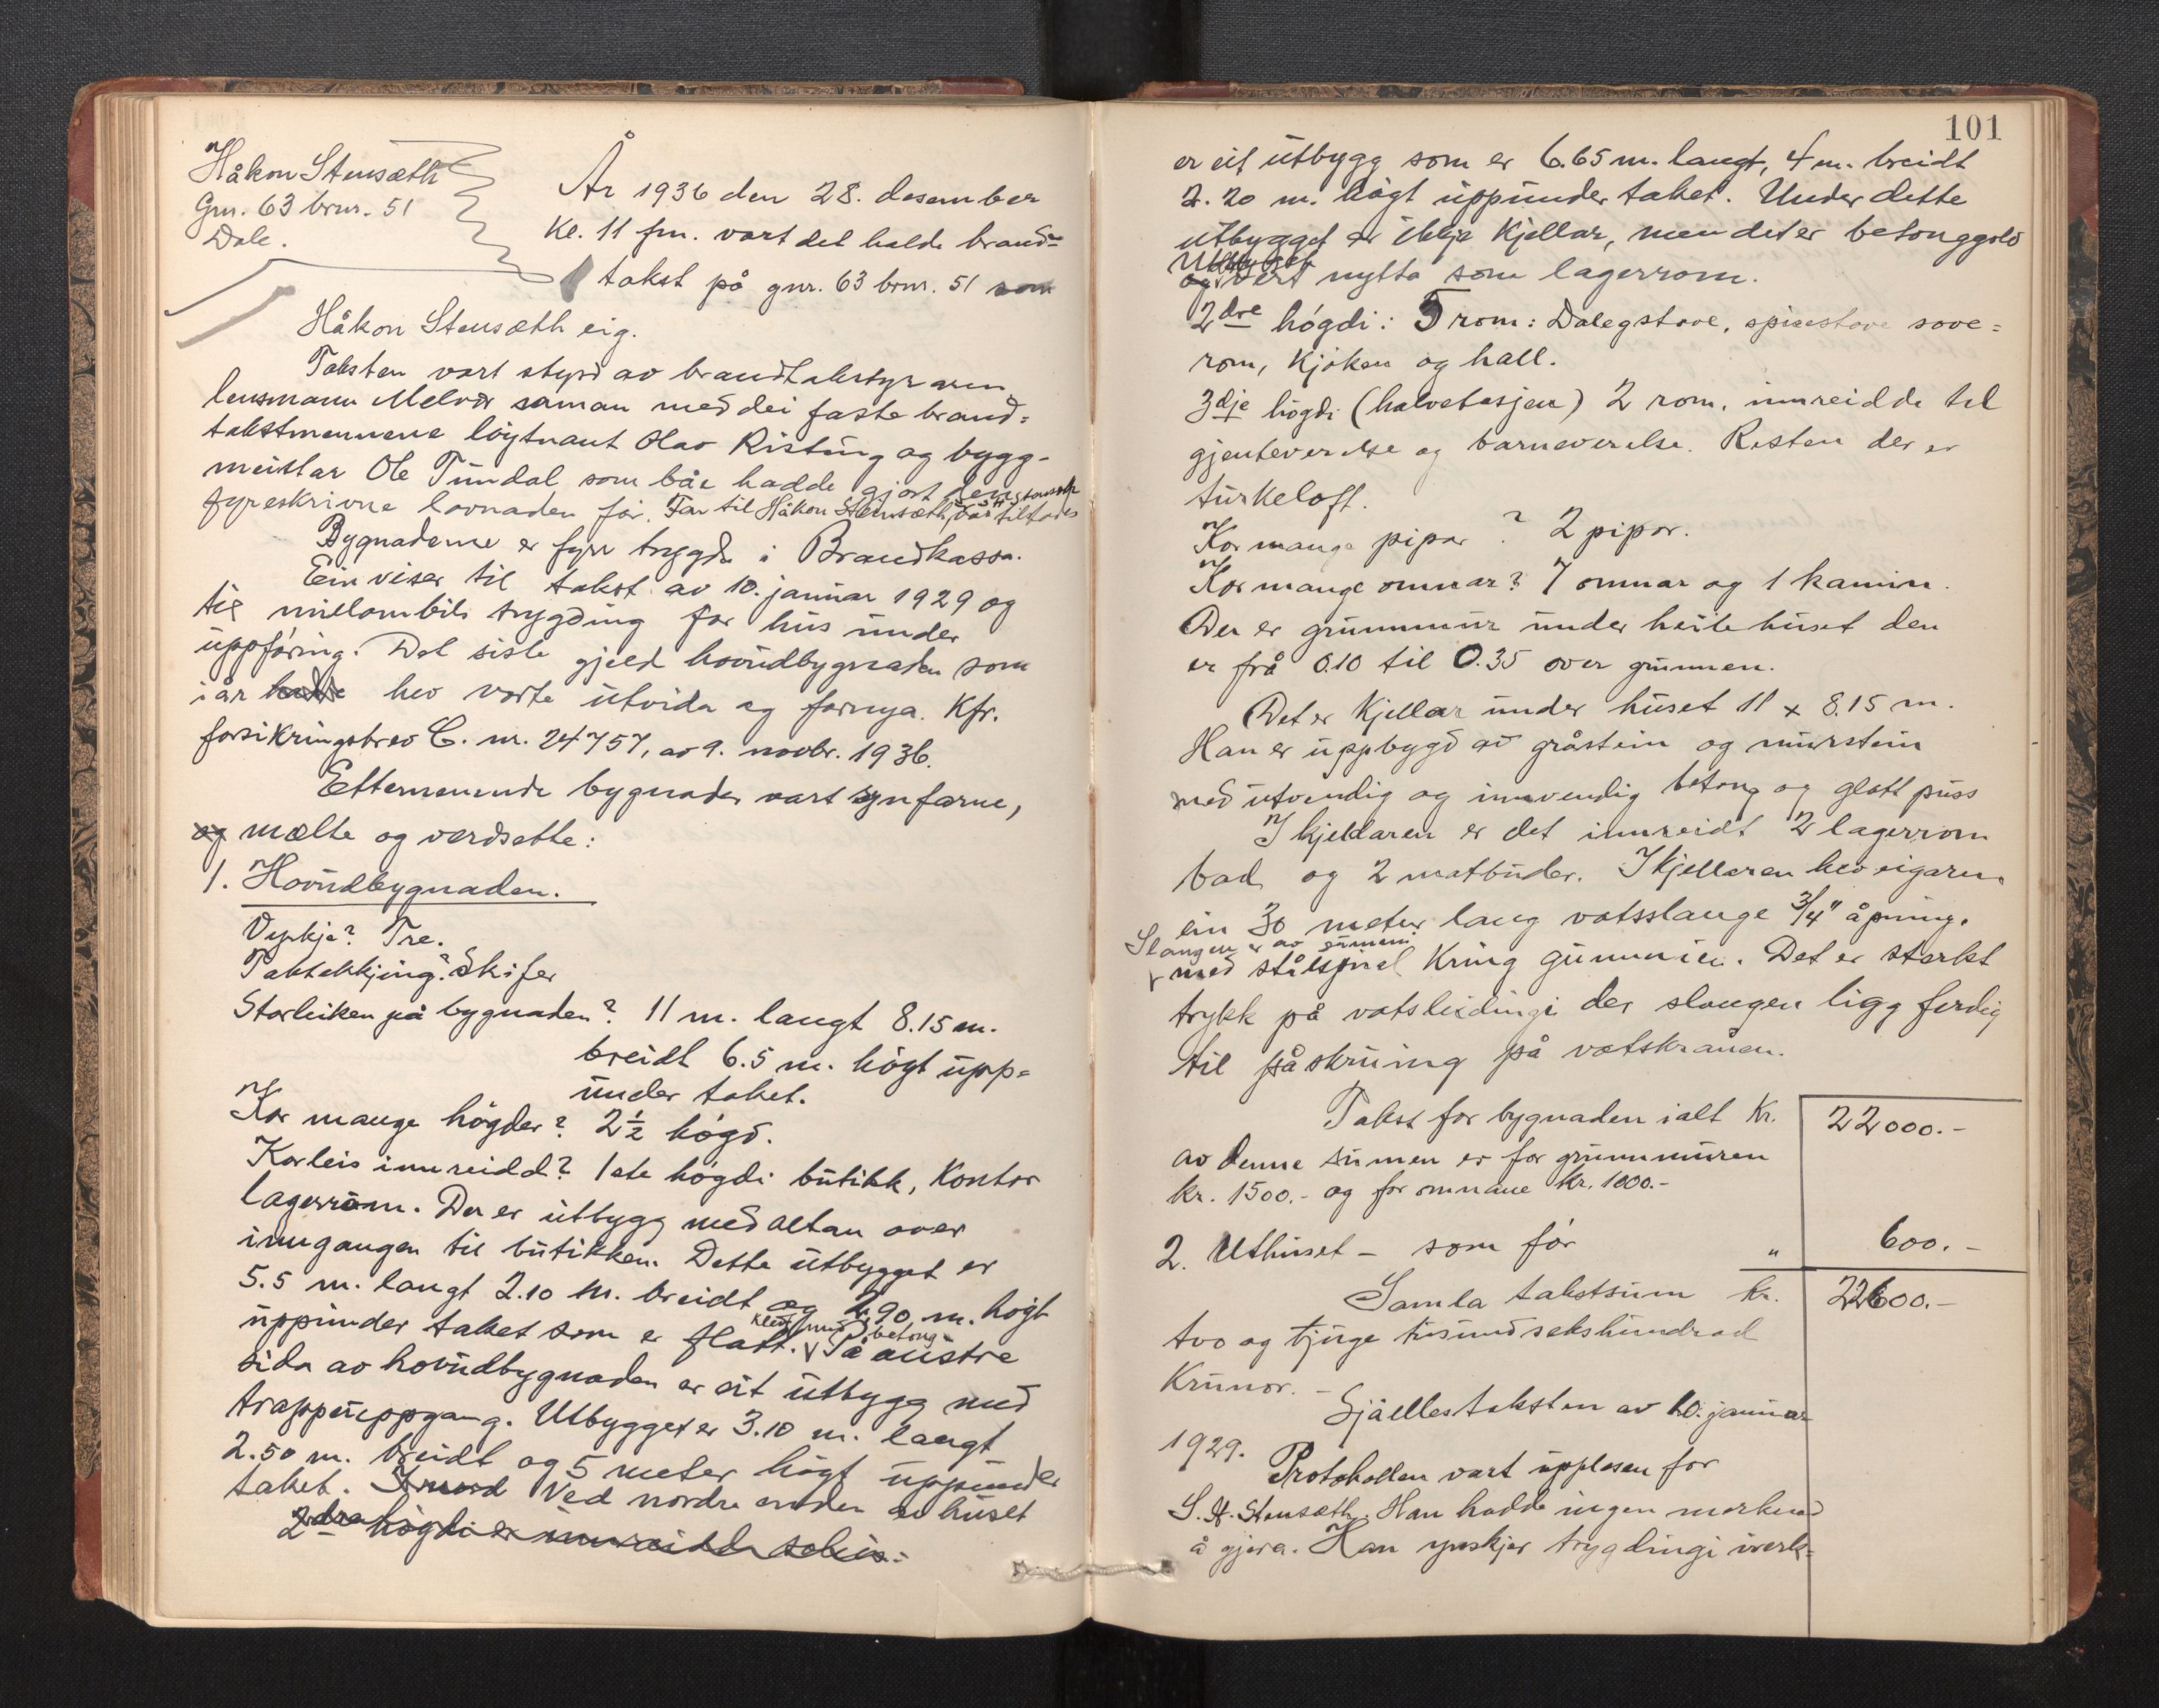 Håkon Stensæth
Gnr. 63 brnr. 51
Dale.
År 1936 den 28. desember
Kl. 11 fm. vart det halde brand-
takst på gnr. 63 brnr. 51 som
Håkon Stensæth eig.
Taksten vart styrd av brandtakstyraren
lensmann Melvær saman med dei faste brand-
takstmennene løytnant Olav Risting og bygg-
meistar Ole Tundal som båe hadde gjort den
fyreskrivne lovnaden før. Far til Håkon Stensæth, var tilstades
Bygnaderne er fyrr trygda i Brandkassa.
Ein viser til takst av 10. januar 1929 og
til millombils trygding for hus under
uppføring. Det siste gjeld hovudbygnaden som
i år hadde hev vorte utvida og fornya. Kfr.
forsikringsbrev C. nr. 24757, av 9. novbr. 1936.
Etternemnde bygnader vart synfarne,
og mælte og verdsette:
1. Hovudbygnaden.
Verkje? Tre.
Taktekkjing? Skifer
Storleiken på bygnaden? 11 m. langt 8.15 m.
breidt 6.5 m. høgt upp-
under taket.
Kor mange høgder? 2½ høgd.
Korleis innreidd? 1ste høgdi butikk, Kontor
lagerrom. Der er utbygg med altan over
inngangen til butikken. Dette utbygget er
5.5 m. langt 2.10 m. breidt og 2.90 m. høgt
uppunder taket som er flatt. På austre
kledd med betong
sida av hovudbygnaden er eit utbygg med
trappeuppgang. Utbygget er 3.10 m. langt
2.50 m. breidt og 5 meter høgt uppunder
taket. I nord Ved nordre enden av huset
2dre høgdi er innreidde soleis:
101
er eit utbygg som er 6.65 m. langt, 4 m. breidt
2.20 m. høgt uppunder taket. Under dette
utbygget er ikkje Kjellar, men det er betonggolv
Utbygget
og vert nytta som lagerrom.
2dre høgdi: 5 rom: Dalegstove, spisestove sove-
rom, Kjøken og hall.
3dje høgdi (halvetasjen) 2 rom, innreidde til
gjenteverelse og barneverelse. Resten der er
turkeloft.
Kor mange pipor? 2 pipor.
Kor mange omnar? 7 omnar og 1 kamin.
Der er grunnmur under heile huset den
er frå 0.10 til 0.35 over grunnen.
Det er Kjellar under huset 11 x 8.15 m.
Han er uppbygd av gråstein og murstein
med utvendig og innvendig betong og glatt puss
I kjellaren er det innreidt 2 lagerrom
bad og 2 matbuder. I Kjellaren hev eigaren
ein 30 meter lang vatsslange 3/4" åpning.
Slangen er av gummi
med stålspiral Kring gummien. Det er sterkt
trykk på vatsleidingi der slangen ligg ferdig
til påskruing på vatskranen.
Takst for bygnaden ialt Kr. 22000.-
av denne sumen er for grunnmuren
kr. 1500.- og for omnane Kr. 1000.-
2. Uthuset - som før " 600.-
Samla takstsum kr. 22600.-
tvo og tjuge tusundsekshundrad
Krunor. -
Sjå ellers taksten av 10. januar
1929.
Protokollen vart upplesen for
S. H. Stensæth. Han hadde ingen merknad
å gjera. Han ynskjer trygdingi iverk-